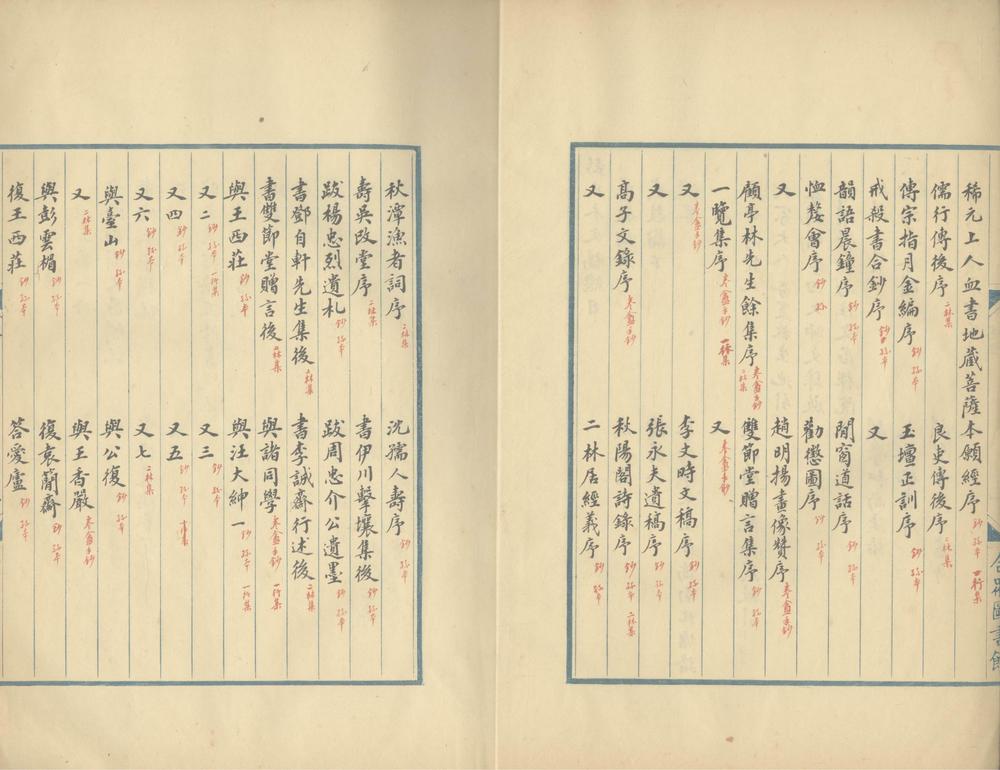 稀元上人血書地藏菩薩本願經序 鈔 孫本 一行集
儒行傳後序 二林集 良史傳後序 二林集
傳宗指月金編序 鈔 孫本 玉壇正訓序 鈔 孫本
戒殺書合鈔序 鈔 孫本 又
韻語晨鐘序 鈔 孫本 閒窗道話序 鈔 孫本
恤嫠會序 鈔 孫 勸懲圖序 鈔 孫本
又 趙明揚畫像贊序
顧亭林先生餘集序 二林集 雙節堂贈言集序 鈔 孫本
一覽集序 又
又 李文時文稿序 鈔 孫本
又 張永夫遺稿序 鈔 孫本
高子文錄序 秋陽閣詩錄序 鈔 孫本 二林集
又 二林居經義序 鈔 孫本
秋潭漁者詞序 二林集 沈孺人壽序 鈔 孫本
壽吳改堂序 二林集 書伊川擊壤集後 鈔 孫本
跋楊忠烈遺札 鈔 孫本 跋周忠介公遺墨 鈔 孫本
書鄧自軒先生集後 二林集 書李誠齋行述後 二林集
書雙節堂贈言後 二林集 與諸同學 一行集
與王西莊 鈔 孫本 與汪大紳一 鈔 孫本 一行集
又二 鈔 孫本 一行集 又三 鈔 孫本
又四 鈔 孫本 又五 鈔 孫本
又六 鈔 孫本 又七 二林集
與臺山 鈔 孫本 與公復 鈔 孫本
又 二林集 與王香嚴
與彭雲楣 鈔 孫本 復袁簡齋 鈔 孫本
復王西莊 鈔 孫本 答愛廬 鈔 孫本